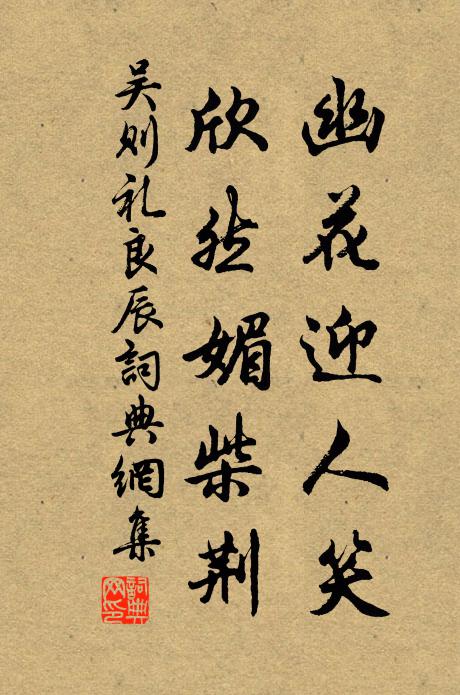 幽花迎人笑
欣然媚柴荆
吴则礼良辰詞典網集
詞典网印